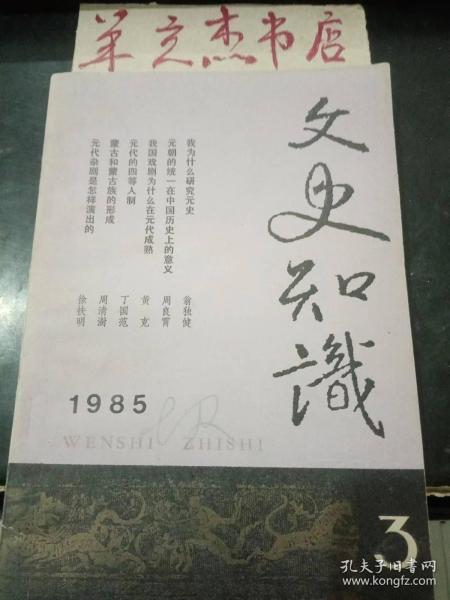 华文杰书店
文史知識
我为什么研究元史 翁独健
元朝的统一在中国历史上的意义 周良霄
我国戏剧为什么在元代成熟 黄克
元代的四等人制 丁国范
蒙古和蒙古族的形成 周清澍
元代杂剧是怎样演出的 徐扶明
1985
WENSHI ZHISHI
3
孔夫子旧书网
www.kongfz.com